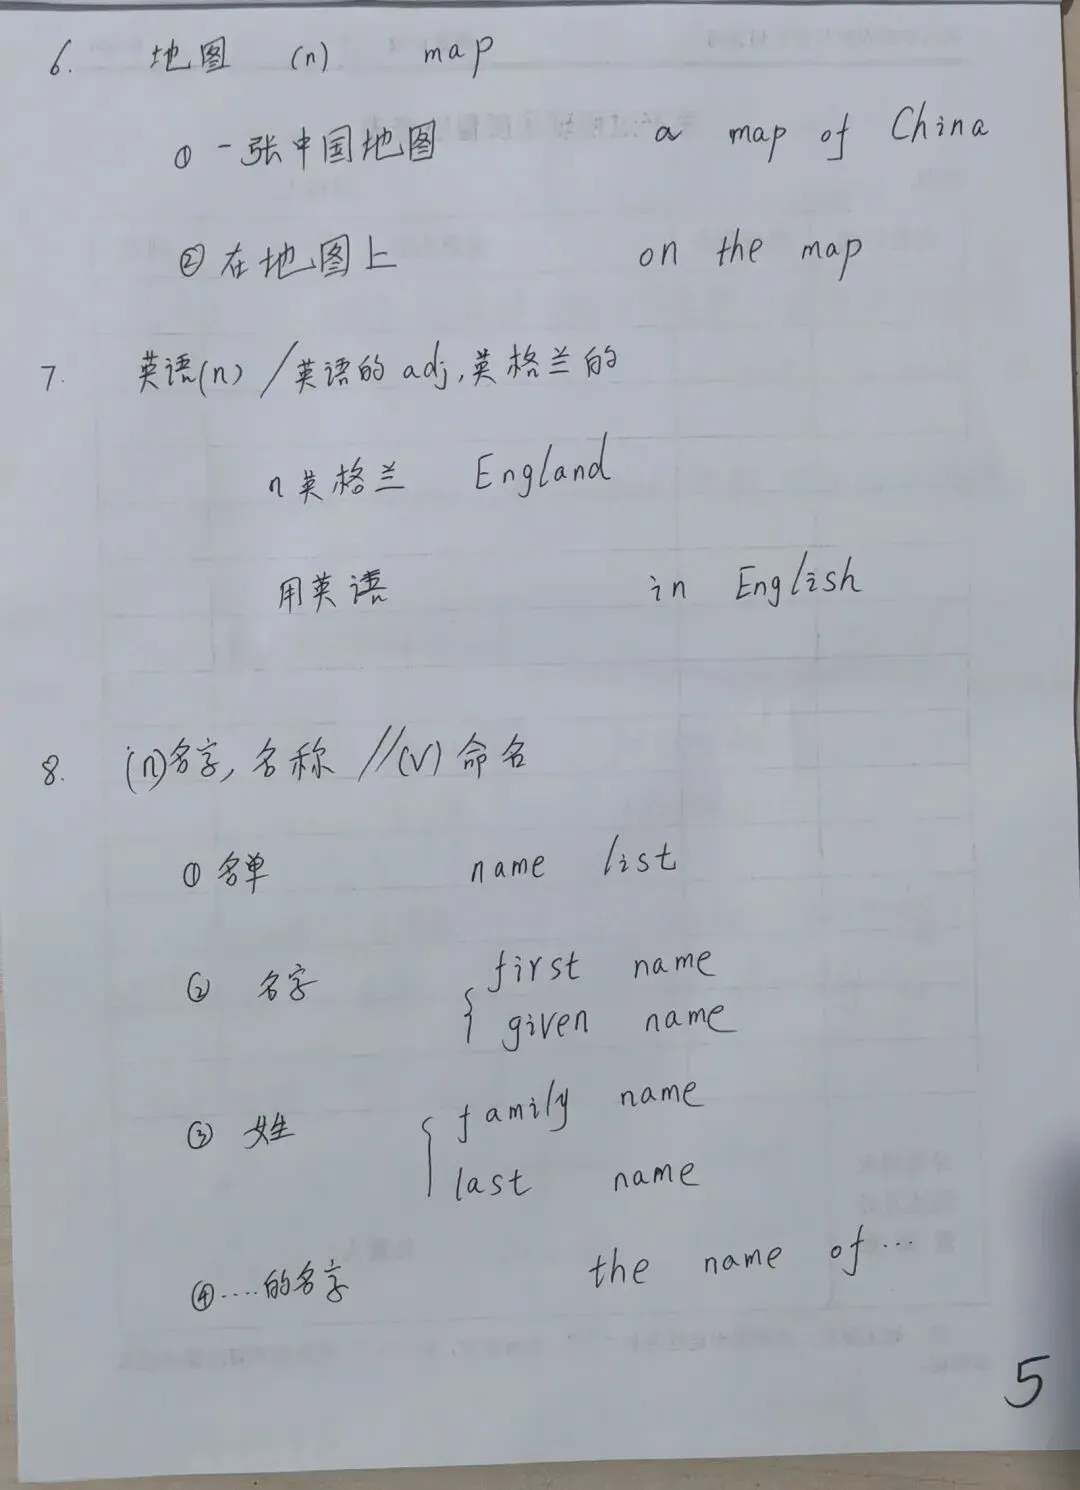 6. 地图 (n) map
① 一张中国地图 a map of China
② 在地图上 on the map
7. 英语(n) / 英语的 adj, 英格兰的
n 英格兰 England
用英语 in English
8. (n)名字, 名称 //(v) 命名
① 名单 name list
② 名字 { first name
given name
③ 姓 { family name
last name
④ ....的名字 the name of ...
5